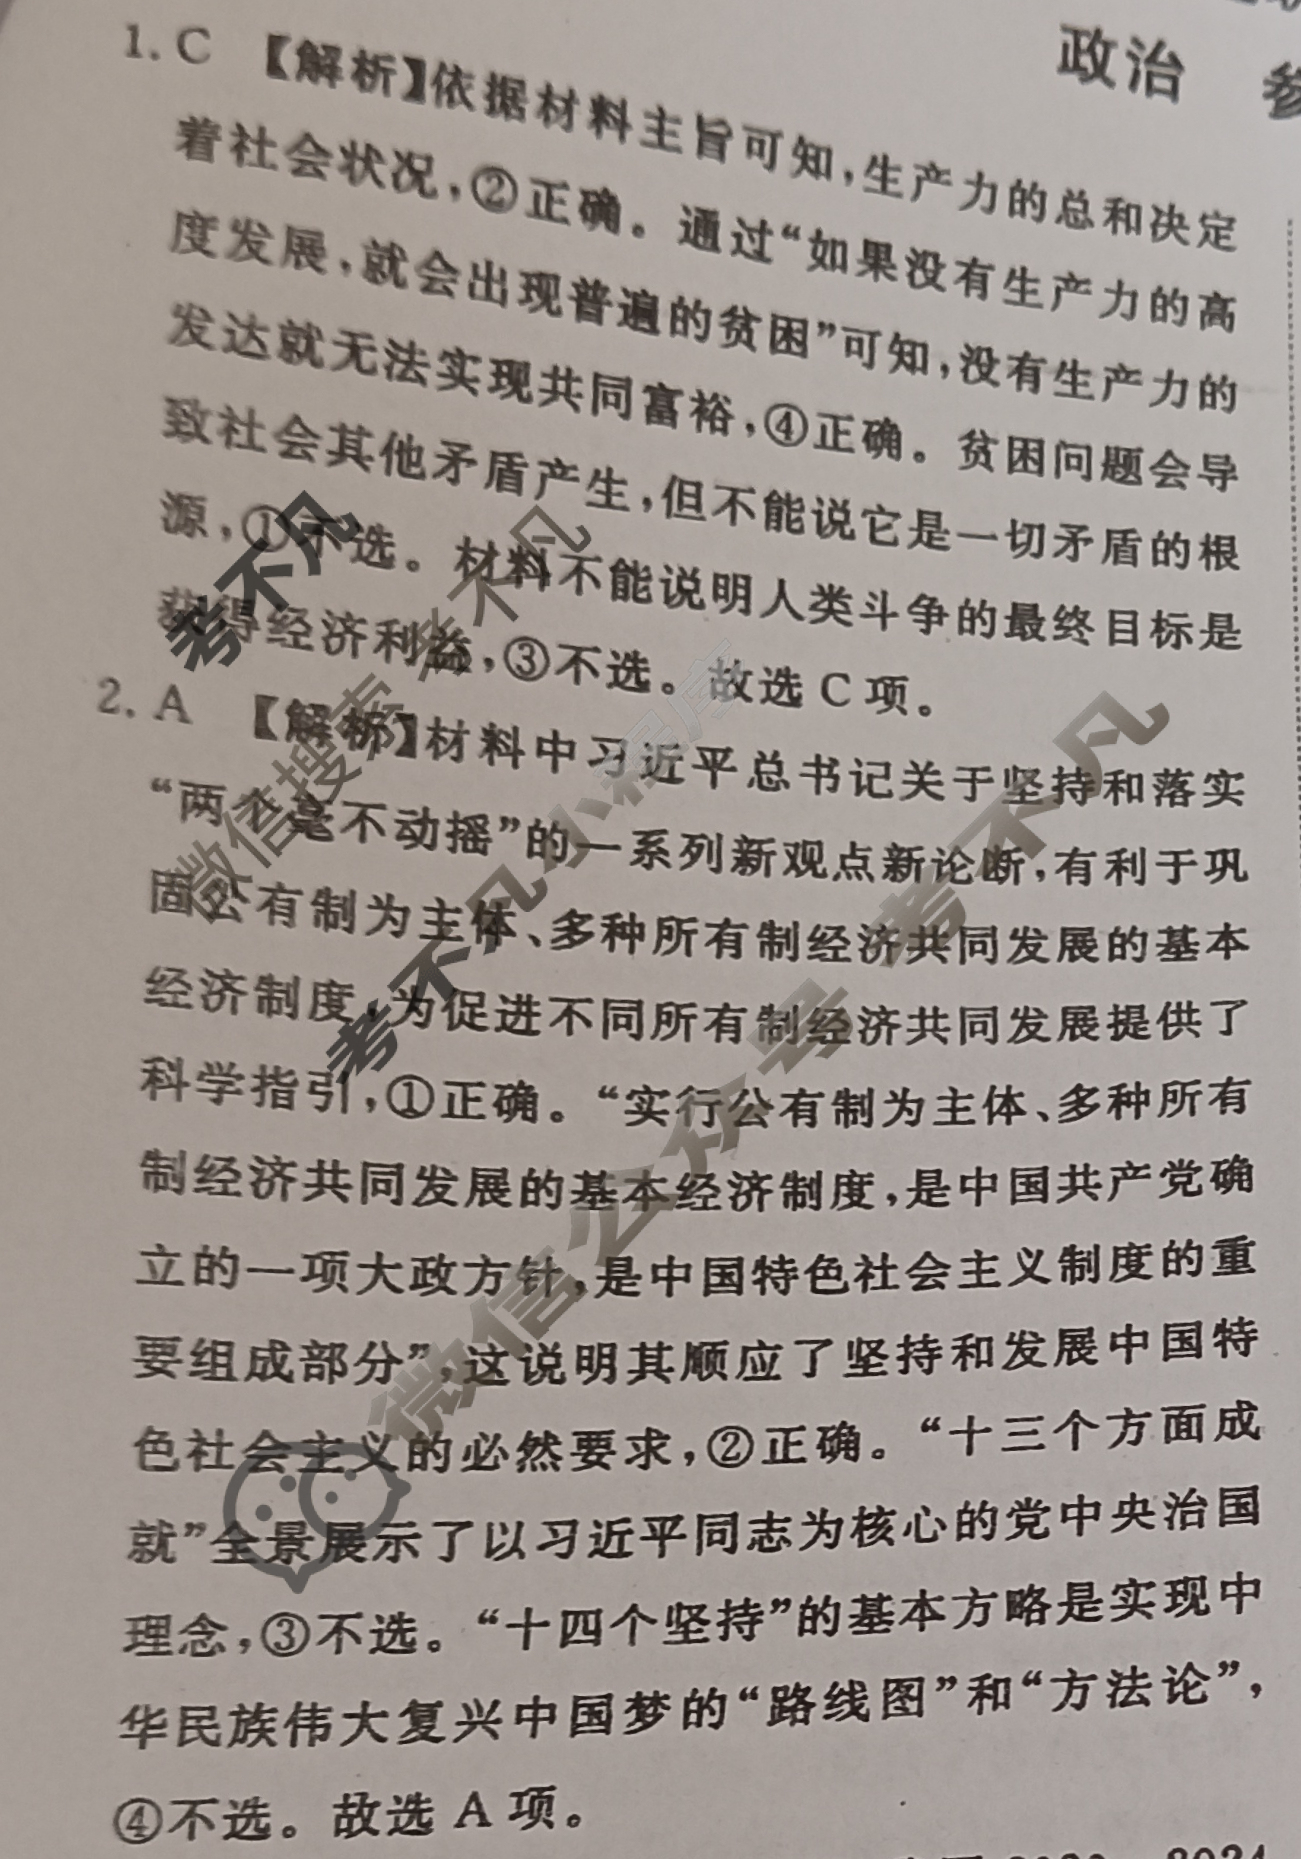 政治
1. C 【解析】依据材料主旨可知,生产力的总和决定
着社会状况,②正确。通过“如果没有生产力的高
度发展,就会出现普遍的贫困”可知,没有生产力的
发达就无法实现共同富裕,④正确。贫困问题会导
致社会其他矛盾产生,但不能说它是一切矛盾的根
源,①不选。材料不能说明人类斗争的最终目标是
获得经济利益,③不选。故选 C 项。
2. A 【解析】材料中习近平总书记关于坚持和落实
“两个毫不动摇”的一系列新观点新论断,有利于巩
固公有制为主体、多种所有制经济共同发展的基本
经济制度,为促进不同所有制经济共同发展提供了
科学指引,①正确。“实行公有制为主体、多种所有
制经济共同发展的基本经济制度,是中国共产党确
立的一项大政方针,是中国特色社会主义制度的重
要组成部分”,这说明其顺应了坚持和发展中国特
色社会主义的必然要求,②正确。“十三个方面成
就”全景展示了以习近平同志为核心的党中央治国
理念,③不选。“十四个坚持”的基本方略是实现中
华民族伟大复兴中国梦的“路线图”和“方法论”,
④不选。故选 A 项。
考不凡
微信搜索 考不凡
考不凡小程序
微信公众号 考不凡